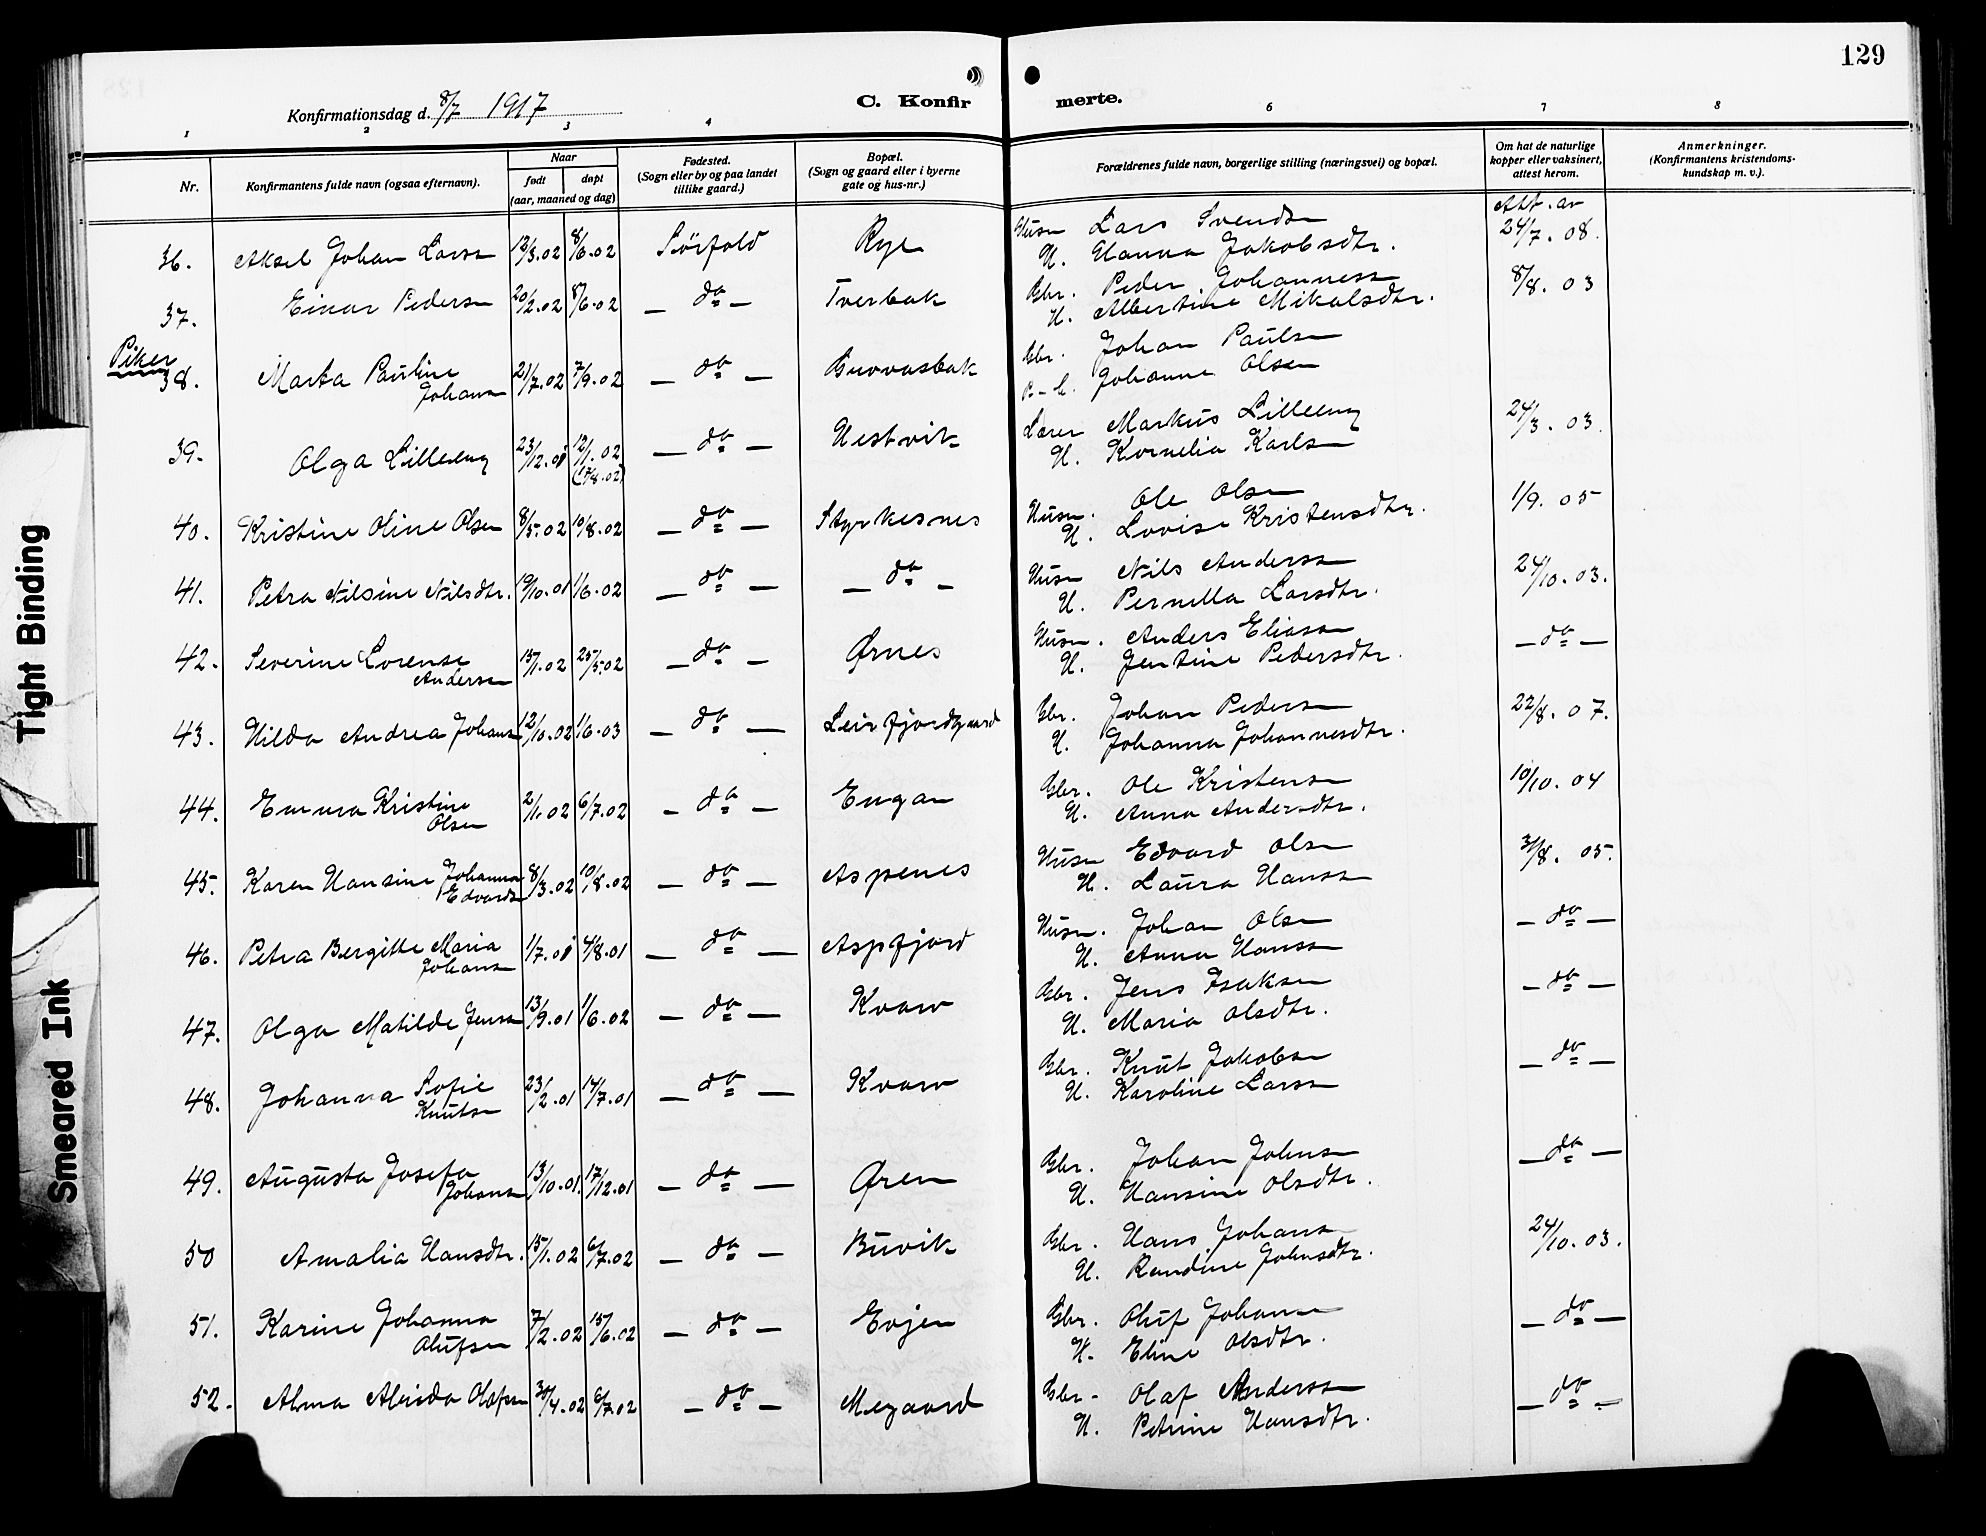 129
Konfirmationsdag d. 8/7 1917
C. Konfir merte.
1 2 3 4 6 7 8
Nr.
Konfirmantens fulde navn (ogsaa efternavn).
Naar
født døpt
(aar, maaned og dag)
Fødested.
(Sogn eller by og paa landet
tillike gaard.)
Bopæl.
(Sogn og gaard eller i byerne
gate og hus-nr.)
Forældrenes fulde navn, borgerlige stilling (næringsvei) og bopæl.
Om hat de naturlige
kopper eller vaksinert,
attest herom.
Anmerkninger.
(Konfirmantens kristendoms-
kundskap m. v.).
Att. av
36. Aksel Johan Larsen 13/3.02 8/6.02 Sörfold Rye Husm Lars Svendsen 24/7. 08.
H. Hanna Jakobsdtr.
37. Einar Pedersen 20/2.02 8/6.02 — do — Tverbak Gbr. Peder Johannessen 8/8. 03
H. Albertine Mikalsdtr.
Piker
38. Marta Pauline 21/7.02 7/9.02 — do — Gbr. Johan Paulsen
Johansen Johanne Olsen
39. Olga Lilleeng 23/12.01 12/1.02 — do — Hestvik Lærer Markus Lilleeng 24/3. 03.
(17/8.02) H. Kornelia Karlsen
40. Kristine Oline Olsen 8/5.02 10/8.02 — do — Styrkesnes Husm. Ole Olsen 1/9. 05
H. Lovise Kristensdtr.
41. Petra Nilsine Nilsdtr. 19/10.01 1/6.02 — do — — do — Husm Nils Anderssen 24/10.03.
H. Pernella Larsdtr.
42. Severine Lorense 15/1.02 25/5.02 — do — Ørnes Husm. Anders Eliassen — do —
Andersen H. Jentine Pedersdtr.
43. Hilda Andrea Johansen 12/10.02 1/6.03 — do — Leirfjordgaard Gbr. Johan Pedersen 22/8. 07.
H. Johanna Johannesdtr.
44. Emma Kristine 2/1.02 6/7.02 — do — Engan Gbr. Ole Kristensen 10/10. 04
Olsen H. Anna Andersdtr.
45. Karen Hansine Johanna 8/3.02 10/8.02 — do — Aspenes Husm Edvard Olsen 31/8. 05.
Edvardsen H. Laura Hanssen
46. Petra Bergitte Maria 1/7.01 4/8.01 — do — Aspfjord Husm. Johan Olsen — do —
Johansen H. Anna Hanssen
47. Olga Matilde Jensen 13/9.01 1/6.02 — do — Kvarv Gbr. Jens Isaksen — do —
H. Maria Olsdtr.
48. Johanna Sofie 23/2.01 14/7.01 — do — Kvarv Gbr. Knut Jakobsen — do —
Knutsen H. Karoline Larsen
49. Augusta Josefa 13/10.01. 17/12.01 — do — Øren Gbr. Johan Johnsen — do —
Johansen H. Hansine Olsdtr.
50 Amalia Hansdtr. 15/1.02 6/7.02 — do — Buvik Gbr. Hans Johansen 24/10.03.
H. Randine Johnsdtr.
51. Karine Johanna 7/2.02 15/6.02 — do — Evjen Gbr. Oluf Johansen — do —
Olufsen H. Eline Olsdtr.
52. Alma Alvida Olafsen 30/4.02 6/7.02 — do — Megaard Gbr. Olaf Anderssen — do —
H. Petrine Hansdtr.
Tight Binding
Smeared Ink